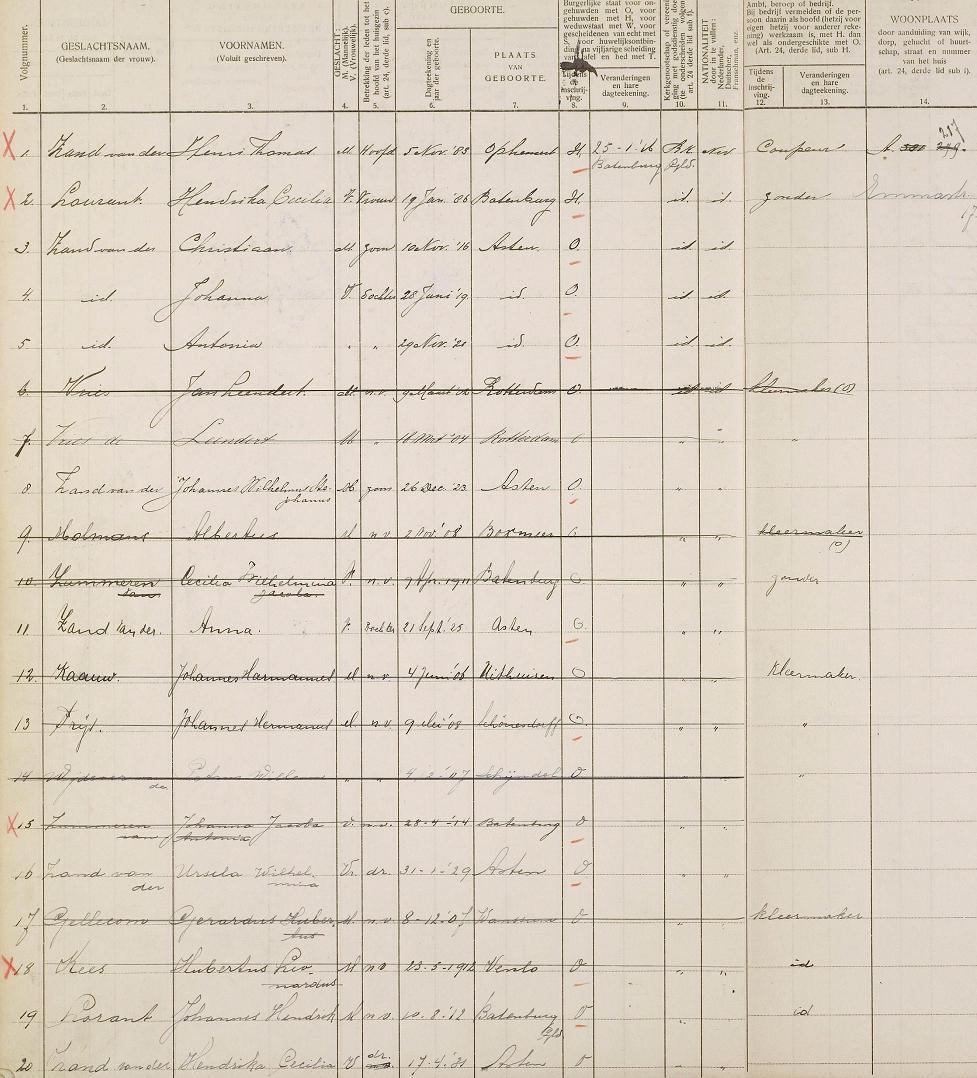 Volgnummer.
GESLACHTSNAAM.
(Geslachtsnaam der vrouw).
VOORNAMEN.
(Voluit geschreven).
GESLACHT:
M. (Mannelijk).
V. (Vrouwelijk).
Betrekking der leden tot het
hoofd van het huisgezin
(art. 24, derde lid, sub c).
GEBOORTE.
Dagteekening en
jaar der geboorte.
PLAATS
VAN
GEBOORTE.
Burgerlijke staat voor on-
gehuwden met O, voor
gehuwden met H, voor
weduwstaat met W, voor
gescheidenen van echt met
S, voor huwelijksontbin-
vijfjarige scheiding
van tafel en bed met T.
Tijdens
de
inschrij-
ving.
Veranderingen
en hare
dagteekening.
NATIONALITEIT
Ambt, beroep of bedrijf.
Bij bedrijf vermelden of de per-
soon daarin als hoofd (hetzij voor
eigen hetzij voor anderer reke-
ning) werkzaam is, met H. dan
wel als ondergeschikte met O.
(Art. 24, derde lid, sub H.
Tijdens
de
inschrij-
ving.
Veranderingen
en hare
dagteekening.
WOONPLAATS
door aanduiding van wijk,
dorp, gehucht of huurt-
schap, straat en nummer
van het huis
(art. 24, derde lid sub i).
1. 2. 3. 4. 5. 6. 7. 8. 9. 10. 11. 12. 13. 14.
217
1. Zand van der Henri Thomas M Hoofd 5 Nov. '83 Ophemert H. 25-1-'16 R.K. Ned Coupeur A. 300 279.
Batenburg Gld.
2. Lourant. Hendrika Cecilia V. Vrouw 19 Jan. '86 Batenburg H. id. id. zonder
3. Zand van der Christiaan M zoon 10 Nov. '16 Asten. O. id id.
4. id. Johanna V. dochter 28 Juni '19. id. O. id. id.
5 id. Antonia " " 29 Nov. '21 id. O. id. id.
6. Vries Jan Leendert. M. n.v. 9 Maart '02 Rotterdam O. id id kleermaker (O)
7. Vries de Leendert M " 18 '04 Rotterdam O " " "
8. Zand van der Johannes Wilhelmus M zoon 26 Dec. '23 Asten O. " "
johanus
9. Molmans Albertus M n v 2 Nov. '08 Boxmeer O " " kleermaker
(O)
10. Lammeren Cecilia Wilhelmina V. n.v. 9 Apr. 1911 Batenburg O. " " zonder
van Jacoba.
11. Zand van der. Anna. V. dochter 21 Sept. '25. Asten O. " "
12. Kaauw. Johannes Harmannes M n v 4 Juni '06 Uithuizen O " " kleermaker.
13 Prijt. Johannes Hermanus M n.v. 9 Mei '08 O. " " "
14 Wijdeven " " 4-2-'07 Schijndel O "
de
15 Lammeren Johanna Jacoba V. n.v. 28-4-'14 Batenburg O " "
van Antonia
16 Zand van Ursula Wilhel- Vr. dr. 31-1-'29 Asten O " "
der mina
17 Gellecom Gerardus Huber M n.v. 8-12-'07 Wanssum O kleermaker
tus
18 Kees Hubertus Leo- M n v 23-5-1912 Venlo O " " id
nardus
19 Lorant Johannes Hendrik M n.v. 10-8-'12 Batenburg O " id
Gld.
20 Zand van der Hendrika Cecilia V dr. 17-4-'31 Asten O " "